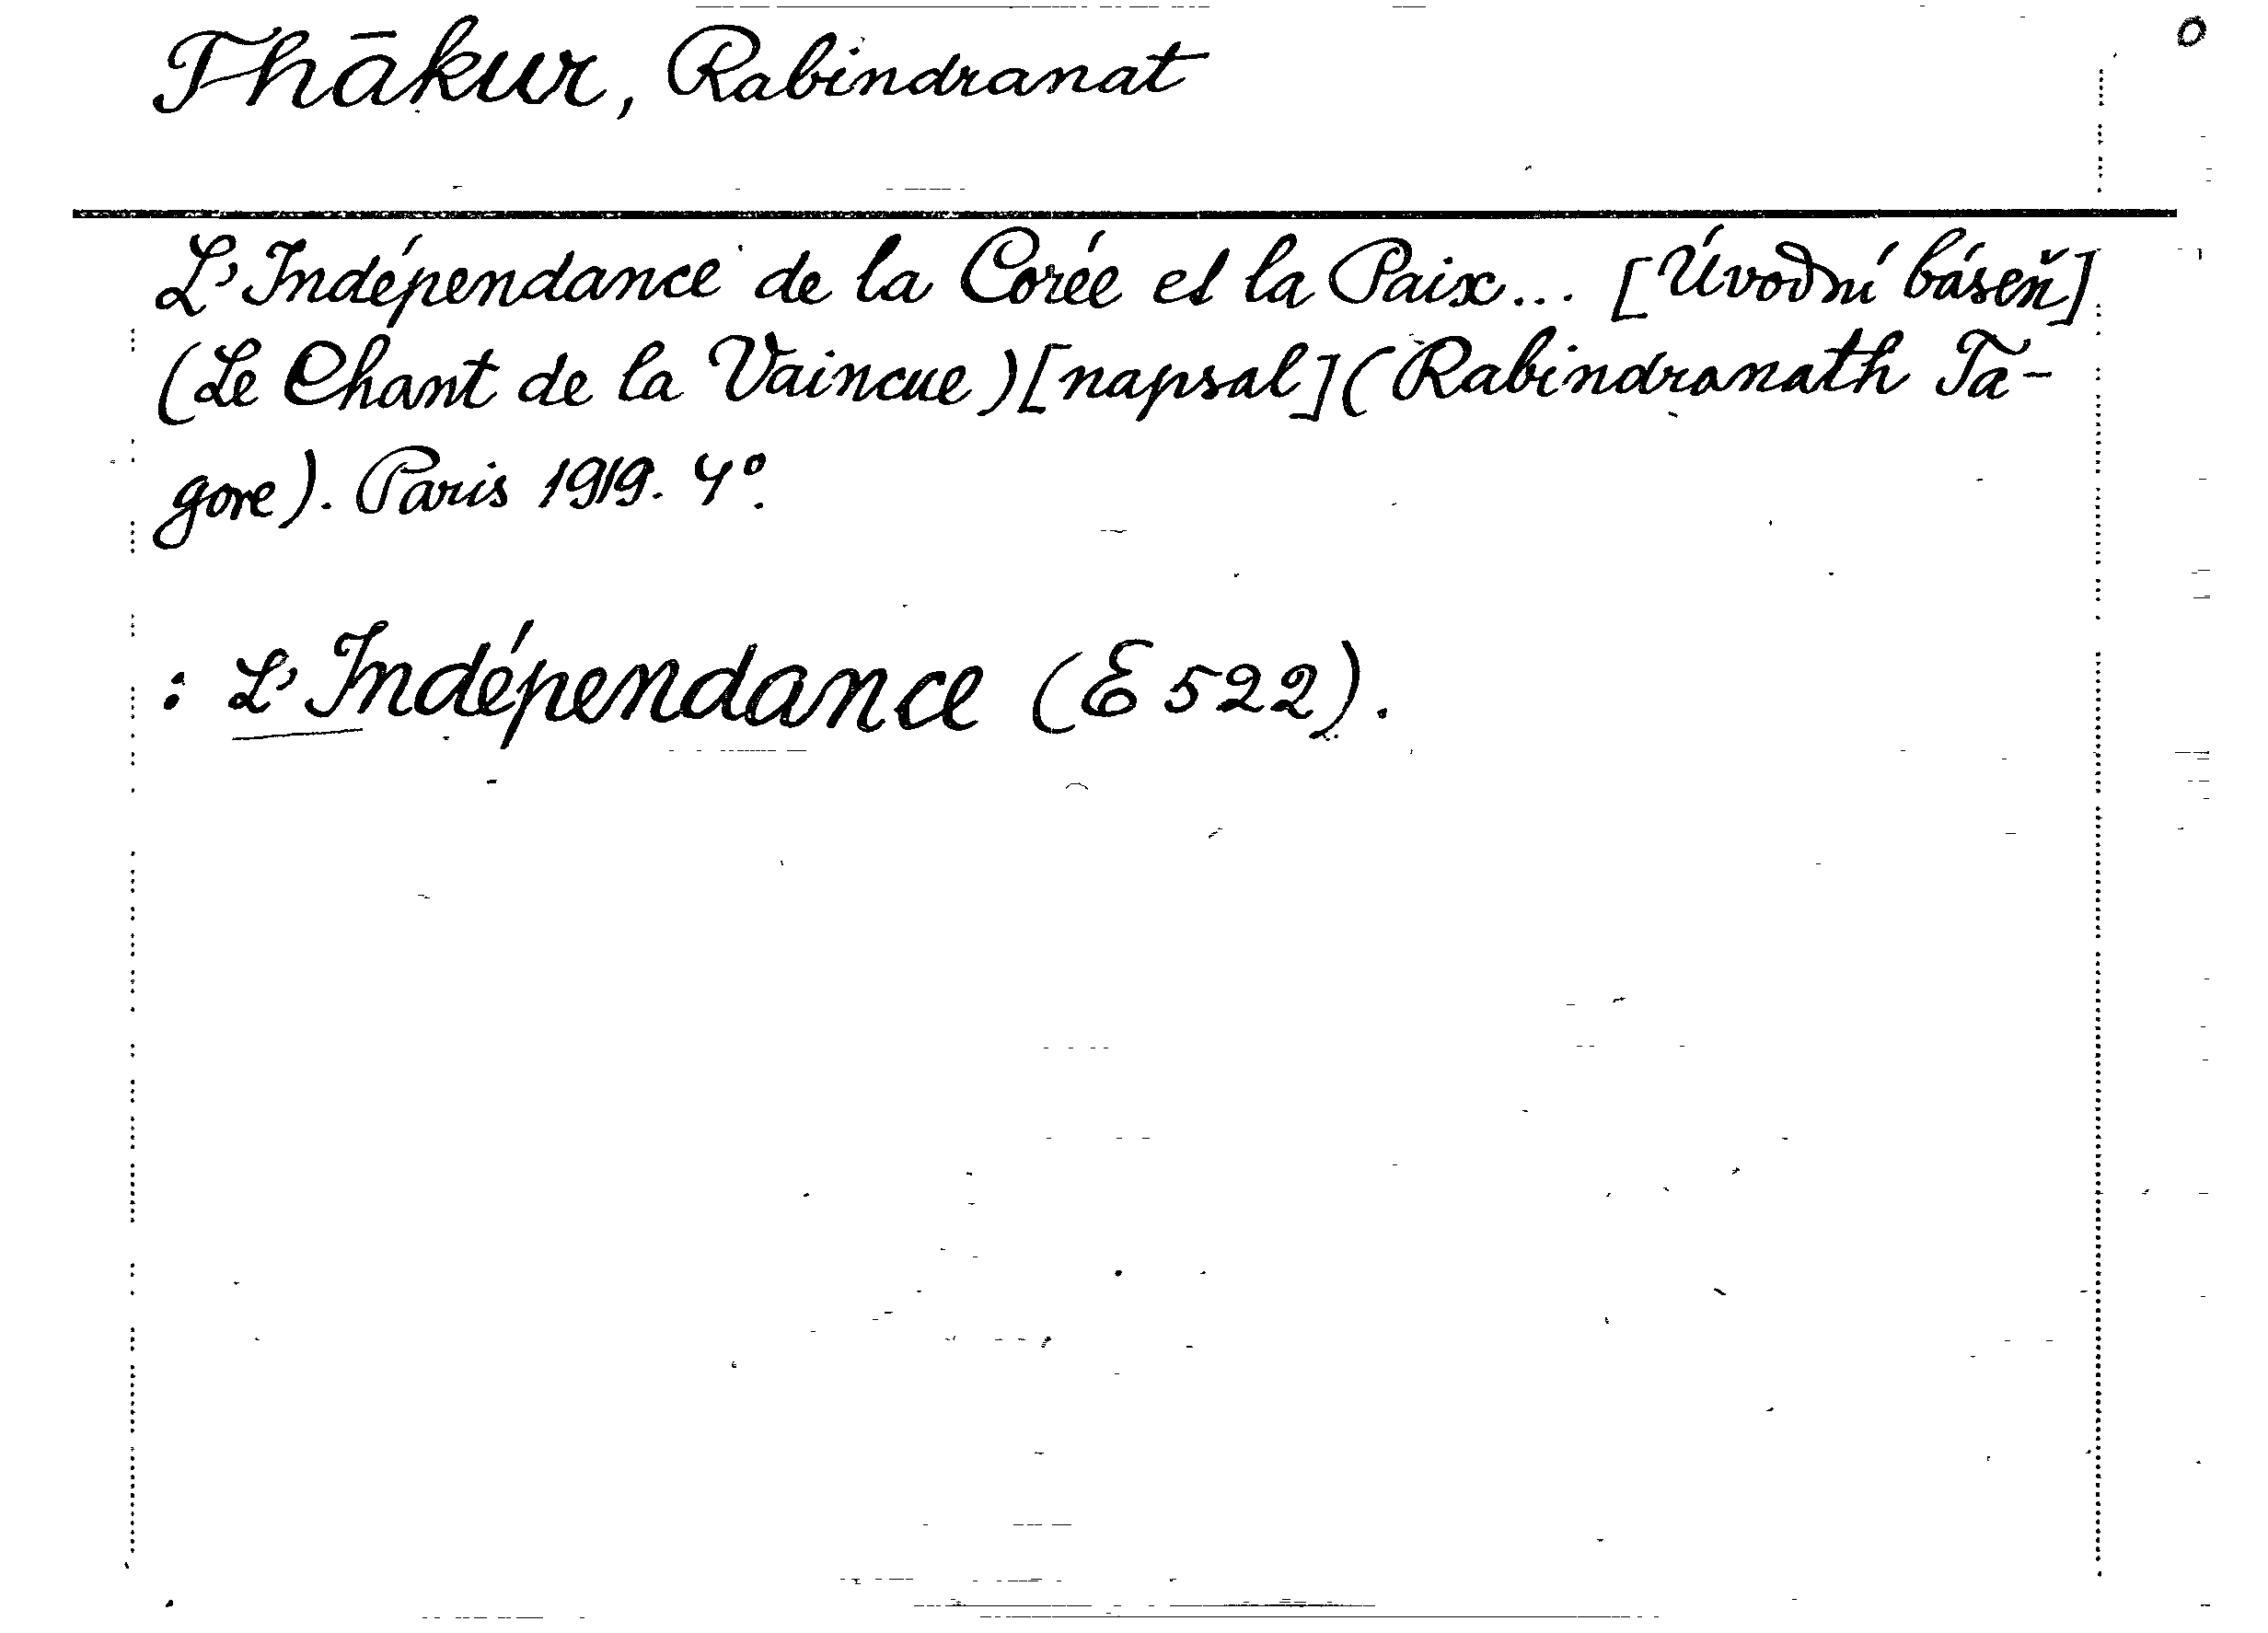 o
Thākur, Rabindranat
L'Indépendance de la Corée et la Paix... [Úvodní báseň]
(Le Chant de la Vaincue) [napsal] (Rabindranath Ta-
gore). Paris 1919. 4°.
: L'Indépendance (E 522).